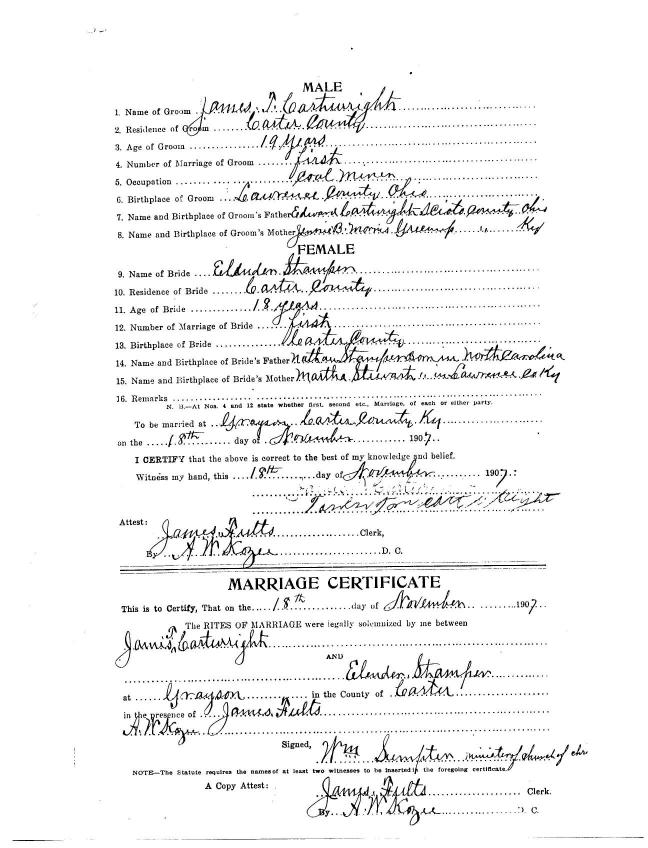 MALE
1. Name of Groom James. T. Cartwright
2. Residence of Groom Carter County
3. Age of Groom 19 years
4. Number of Marriage of Groom first
5. Occupation Coal Miner
6. Birthplace of Groom Lawrence County Ohio
7. Name and Birthplace of Groom's Father Edward Cartwright Scioto County Ohio
8. Name and Birthplace of Groom's Mother Jennie B. Morris Greenup " Ky
FEMALE
9. Name of Bride Elender Stamper
10. Residence of Bride Carter County
11. Age of Bride 18 years
12. Number of Marriage of Bride first
13. Birthplace of Bride Carter County
14. Name and Birthplace of Bride's Father Nathan Stamper born in North Carolina
15. Name and Birthplace of Bride's Mother Martha Stewart " in Lawrence Co Ky
16. Remarks
N. B.—At Nos. 4 and 12 state whether first, second etc., Marriage, of each or either party.
To be married at Grayson, Carter County, Ky
on the 18th day of November 1907.
I CERTIFY that the above is correct to the best of my knowledge and belief.
Witness my hand, this 18th day of November 1907.:
Attest:
James Fults Clerk,
By A. W. Kozee D. C.
MARRIAGE CERTIFICATE
This is to Certify, That on the 18th day of November 1907.
The RITES OF MARRIAGE were legally solemnized by me between
James T. Cartwright
AND
Elender Stamper
at Grayson in the County of Carter
in the presence of James Fults
A. W. Kozee
Signed, Wm Sumpter minister of church of chr
NOTE—The Statute requires the names of at least two witnesses to be inserted in the foregoing certificate.
A Copy Attest: James Fults Clerk.
By A. W. Kozee D. C.